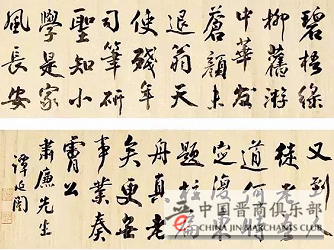 碧梧緑
柳舊游
中華髮
蒼顔未
退翁天
使殘年
司筆研
聖知小
學是家
風長安
又到人
徒老吾
道何時
定復東
題柱扁
舟真老
矣更无
事業奏
膚公
肅廉先生
譚延闓
中国晋商俱乐部
CHINA JIN MERCHANTS CLUB